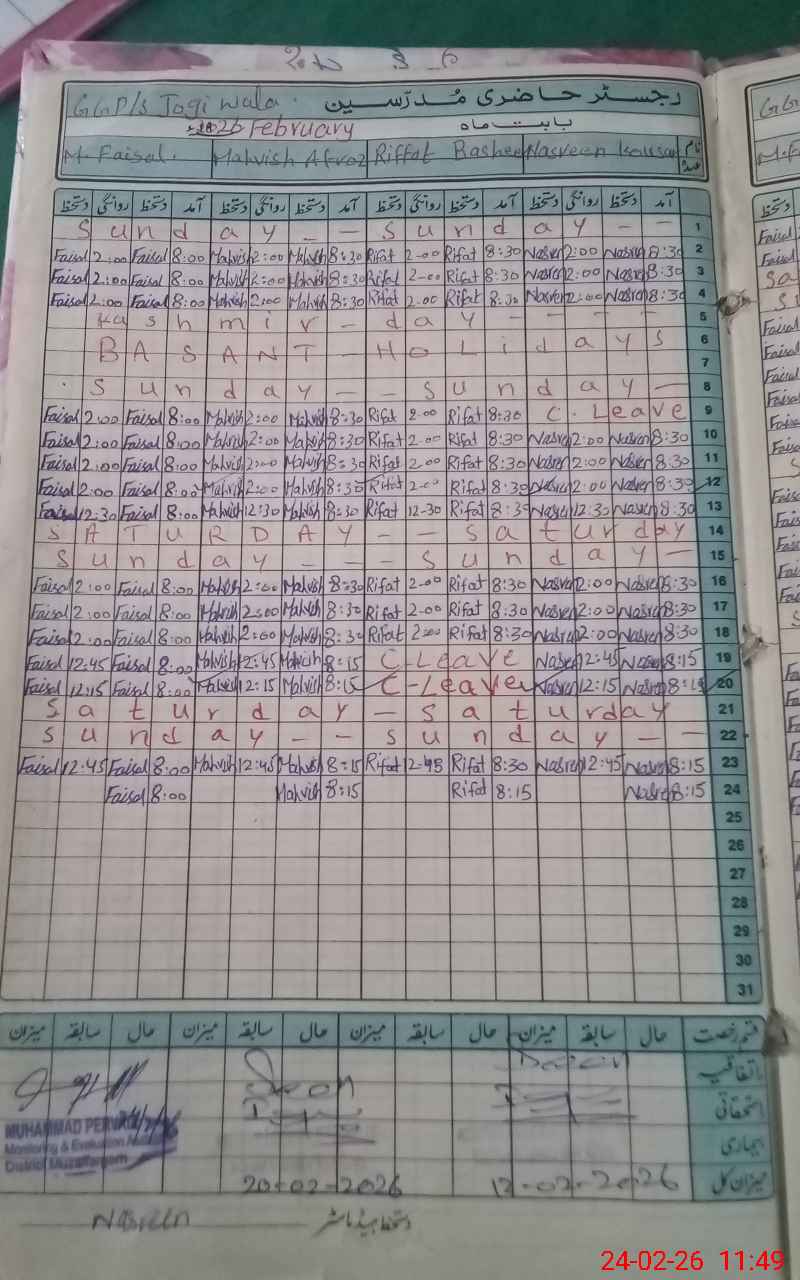 GGP/s Jogi wala. رجسٹر حاضری مُدرّسین
2026 February بابت ماہ
M. Faisal. Mahvish Afroz Riffat Basheer Nasreen Kousar نام
دستخط روانگی دستخط آمد دستخط روانگی دستخط آمد دستخط روانگی دستخط آمد دستخط روانگی دستخط آمد
Sunday - - Sunday - - 1
Faisal 2:00 Faisal 8:00 Mahvish 2:00 Mahvish 8:30 Rifat 2-00 Rifat 8:30 Nasren 2:00 Nasren 8:30 2
Faisal 2:00 Faisal 8:00 Mahvish 2:00 Mahvish 8:30 Rifat 2-00 Rifat 8:30 Nasren 2:00 Nasren 8:30 3
Faisal 2:00 Faisal 8:00 Mahvish 2:00 Mahvish 8:30 Rifat 2.00 Rifat 8:30 Nasren 2:00 Nasren 8:30 4
Kashmir - day - - - - 5
BASANT - HOLidays 6
7
Sunday - - Sunday - 8
Faisal 2:00 Faisal 8:00 Mahvish 2:00 Mahvish 8:30 Rifat 2.00 Rifat 8:30 C. Leave 9
Faisal 2:00 Faisal 8:00 Mahvish 2:00 Mahvish 8:30 Rifat 2.00 Rifat 8:30 Nasren 2:00 Nasren 8:30 10
Faisal 2:00 Faisal 8:00 Mahvish 2:00 Mahvish 8:30 Rifat 2.00 Rifat 8:30 Nasren 2:00 Nasren 8:30 11
Faisal 2:00 Faisal 8:00 Mahvish 2:00 Mahvish 8:30 Rifat 2.00 Rifat 8:30 Nasren 2:00 Nasren 8:30 12
Faisal 12:30 Faisal 8:00 Mahvish 12:30 Mahvish 8:30 Rifat 12-30 Rifat 8:30 Nasren 12:30 Nasren 8:30 13
SATURDAY - - Saturday 14
Sunday - - - Sunday - 15
Faisal 2:00 Faisal 8:00 Mahvish 2:00 Mahvish 8:30 Rifat 2-00 Rifat 8:30 Nasren 2:00 Nasren 8:30 16
Faisal 2:00 Faisal 8:00 Mahvish 2:00 Mahvish 8:30 Rifat 2-00 Rifat 8:30 Nasren 2:00 Nasren 8:30 17
Faisal 2:00 Faisal 8:00 Mahvish 2:00 Mahvish 8:30 Rifat 2:00 Rifat 8:30 Nasren 2:00 Nasren 8:30 18
Faisal 12:45 Faisal 8:00 Mahvish 12:45 Mahvish 8:15 C-Leave Nasren 12:45 Nasren 8:15 19
Faisal 12:15 Faisal 8:00 Mahvish 12:15 Mahvish 8:15 C-Leave Nasren 12:15 Nasren 8:15 20
Saturday - Saturday 21
Sunday - - Sunday - - 22
Faisal 12:45 Faisal 8:00 Mahvish 12:45 Mahvish 8:15 Rifat 12-45 Rifat 8:30 Nasren 12:45 Nasren 8:15 23
Faisal 8:00 Mahvish 8:15 Rifat 8:15 Nasren 8:15 24
25
26
27
28
29
30
31
میزان سابقہ حال میزان سابقہ حال میزان سابقہ حال میزان سابقہ حال قسم رخصت
اتفاقیہ
استحقاقی
MUHAMMAD PERVAIZ
Monitoring & Evaluation
District Muzaffargarh
بیماری
20-02-2026 12-02-2026 میزان کل
Nasreen دستخط ہیڈ ماسٹر
24-02-26 11:49